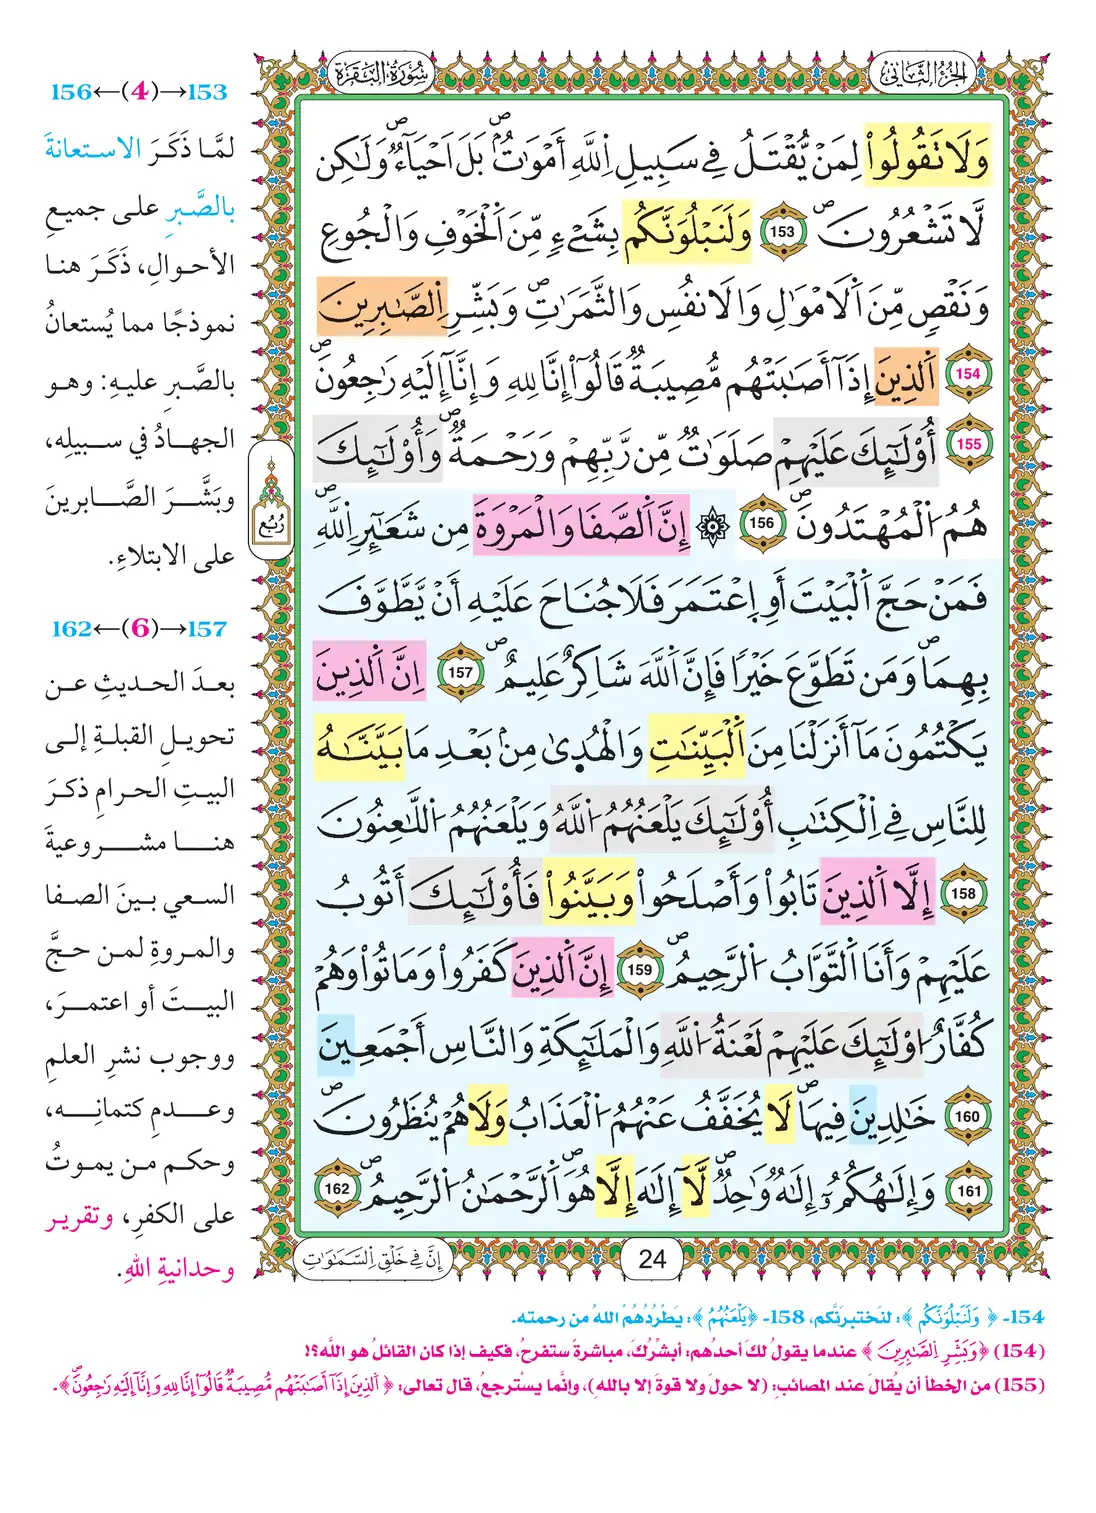 الجزء الثاني
سورة البقرة
وَلَا تَقُولُواْ لِمَنْ يُّقْتَلُ فِے سَبِيلِ اِ۬للَّهِ أَمْوَٰتُۢ ۖ بَلَ اَحْيَآءٞ ۖ وَلَٰكِن
لَّا تَشْعُرُونَ ۖ 153 وَلَنَبْلُوَنَّكُم بِشَےْءٖ مِّنَ اَ۬لْخَوْفِ وَالْجُوعِ
وَنَقْصٖ مِّنَ اَ۬لَامْوَٰلِ وَالَانفُسِ وَالثَّمَرَٰتِ ۖ وَبَشِّرِ اِ۬لصَّٰبِرِينَ
154 اَ۬لذِينَ إِذَآ أَصَٰبَتْهُم مُّصِيبَةٞ قَالُوٓاْ إِنَّا لِلهِ وَإِنَّآ إِلَيْهِ رَٰجِعُونَ ۖ
155 أُوْلَٰٓئِكَ عَلَيْهِمْ صَلَوَٰتٞ مِّن رَّبِّهِمْ وَرَحْمَةٞ ۖ وَأُوْلَٰٓئِكَ
هُمُ اُ۬لْمُهْتَدُونَ ۖ 156 ۞ إِنَّ اَ۬لصَّفَا وَالْمَرْوَةَ مِن شَعَٰٓئِرِ اِ۬للَّهِ ۖ
فَمَنْ حَجَّ اَ۬لْبَيْتَ أَوِ اِ۪عْتَمَرَ فَلَا جُنَاحَ عَلَيْهِ أَنْ يَّطَّوَّفَ
بِهِمَا ۖ وَمَن تَطَوَّعَ خَيْرٗا فَإِنَّ اَ۬للَّهَ شَاكِرٌ عَلِيمٌ ۖ 157 اِنَّ اَ۬لذِينَ
يَكْتُمُونَ مَآ أَنزَلْنَا مِنَ اَ۬لْبَيِّنَٰتِ وَالْهُد۪يٰ مِنۢ بَعْدِ مَا بَيَّنَّٰهُ
لِلنَّاسِ فِے اِ۬لْكِتَٰبِ أُوْلَٰٓئِكَ يَلْعَنُهُمُ اُ۬للَّهُ وَيَلْعَنُهُمُ اُ۬للَّٰعِنُونَ
158 إِلَّا اَ۬لذِينَ تَابُواْ وَأَصْلَحُواْ وَبَيَّنُواْ فَأُوْلَٰٓئِكَ أَتُوبُ
عَلَيْهِمْ وَأَنَا اَ۬لتَّوَّابُ اُ۬لرَّحِيمُ ۖ 159 إِنَّ اَ۬لذِينَ كَفَرُواْ وَمَاتُواْ وَهُمْ
كُفَّارٌ اوْلَٰٓئِكَ عَلَيْهِمْ لَعْنَةُ اُ۬للَّهِ وَالْمَلَٰٓئِكَةِ وَالنَّاسِ أَجْمَعِينَ
160 خَٰلِدِينَ فِيهَا ۖ لَا يُخَفَّفُ عَنْهُمُ اُ۬لْعَذَابُ وَلَا هُمْ يُنظَرُونَ ۖ
161 وَإِلَٰهُكُمُۥٓ إِلَٰهٞ وَٰحِدٞ ۖ لَّآ إِلَٰهَ إِلَّا هُوَ ۖ اَ۬لرَّحْمَٰنُ اُ۬لرَّحِيمُ ۖ 162
24
إِنَّ فِے خَلْقِ اِ۬لسَّمَٰوَٰتِ
رُبُع
153→(4)←156
لمَّا ذَكَرَ الاستعانةَ
بالصَّبرِ على جميعِ
الأحوالِ، ذَكَرَ هنا
نموذجًا مما يُستعانُ
بالصَّبرِ عليهِ: وهو
الجهادُ في سبيلِه،
وبَشَّرَ الصَّابرينَ
على الابتلاءِ.
157→(6)←162
بعدَ الحديثِ عن
تحويلِ القبلةِ إلى
البيتِ الحرامِ ذكرَ
هنا مشروعيةَ
السعي بينَ الصفا
والمروةِ لمن حجَّ
البيتَ أو اعتمرَ،
ووجوب نشرِ العلمِ
وعدمِ كتمانِه،
وحكم من يموتُ
على الكفرِ، وتقرير
وحدانيةِ اللهِ.
154- ﴿وَلَنَبْلُوَنَّكُم﴾: لنَختبرنَّكم، 158- ﴿يَلْعَنُهُمُ﴾: يَطْرُدُهُمْ اللهُ من رحمته.
(154) ﴿وَبَشِّرِ اِ۬لصَّٰبِرِينَ﴾ عندما يقولُ لكَ أحدُهم: أبشِّرُكَ، مباشرةً ستفرحُ، فكيف إذا كان القائلُ هو اللَّه؟!
(155) من الخطأ أن يُقالَ عند المصائبِ: (لا حولَ ولا قوةَ إلا باللهِ)، وإنَّما يسْترجعُ، قال تعالى: ﴿اَ۬لذِينَ إِذَآ أَصَٰبَتْهُم مُّصِيبَةٞ قَالُوٓاْ إِنَّا لِلهِ وَإِنَّآ إِلَيْهِ رَٰجِعُونَ ۖ﴾.